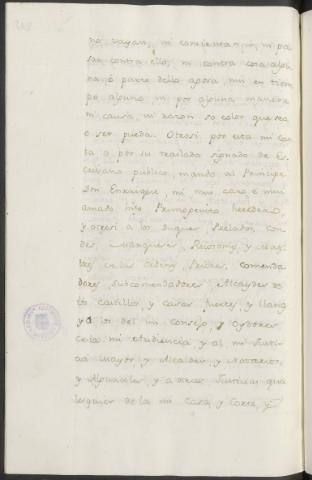 no vayan, ni consientan ir, ni pa
sar contra ello, ni contra cosa algu
na, ó parte dello agora, nin en tiem
po alguno ni por alguna manera
ni causa, ni razon so color que sea
o ser pueda. Otrosi por esta mi car
ta o por su traslado signado de Es
crivano publico, mando al Principe
Don Enrrique, mi mui caro e mui
amado hijo Primogenito heredero,
y otrosi a los Duques, Perlados, con
des, Marqueses, Ricos omes, y Maes
tres de las ordenes, Priores, comenda
dores, subcomendadores, Alcaydes de
los castillos y casas fuertes, y llanas
y á los del mi consejo, y oydores
de la mi Audiencia y al mi Justi
cia mayor, y Alcaldes, y Notarios,
y Alguaciles, y a otras Justicias qua
lesquier de la mi Casa, y Corte, y